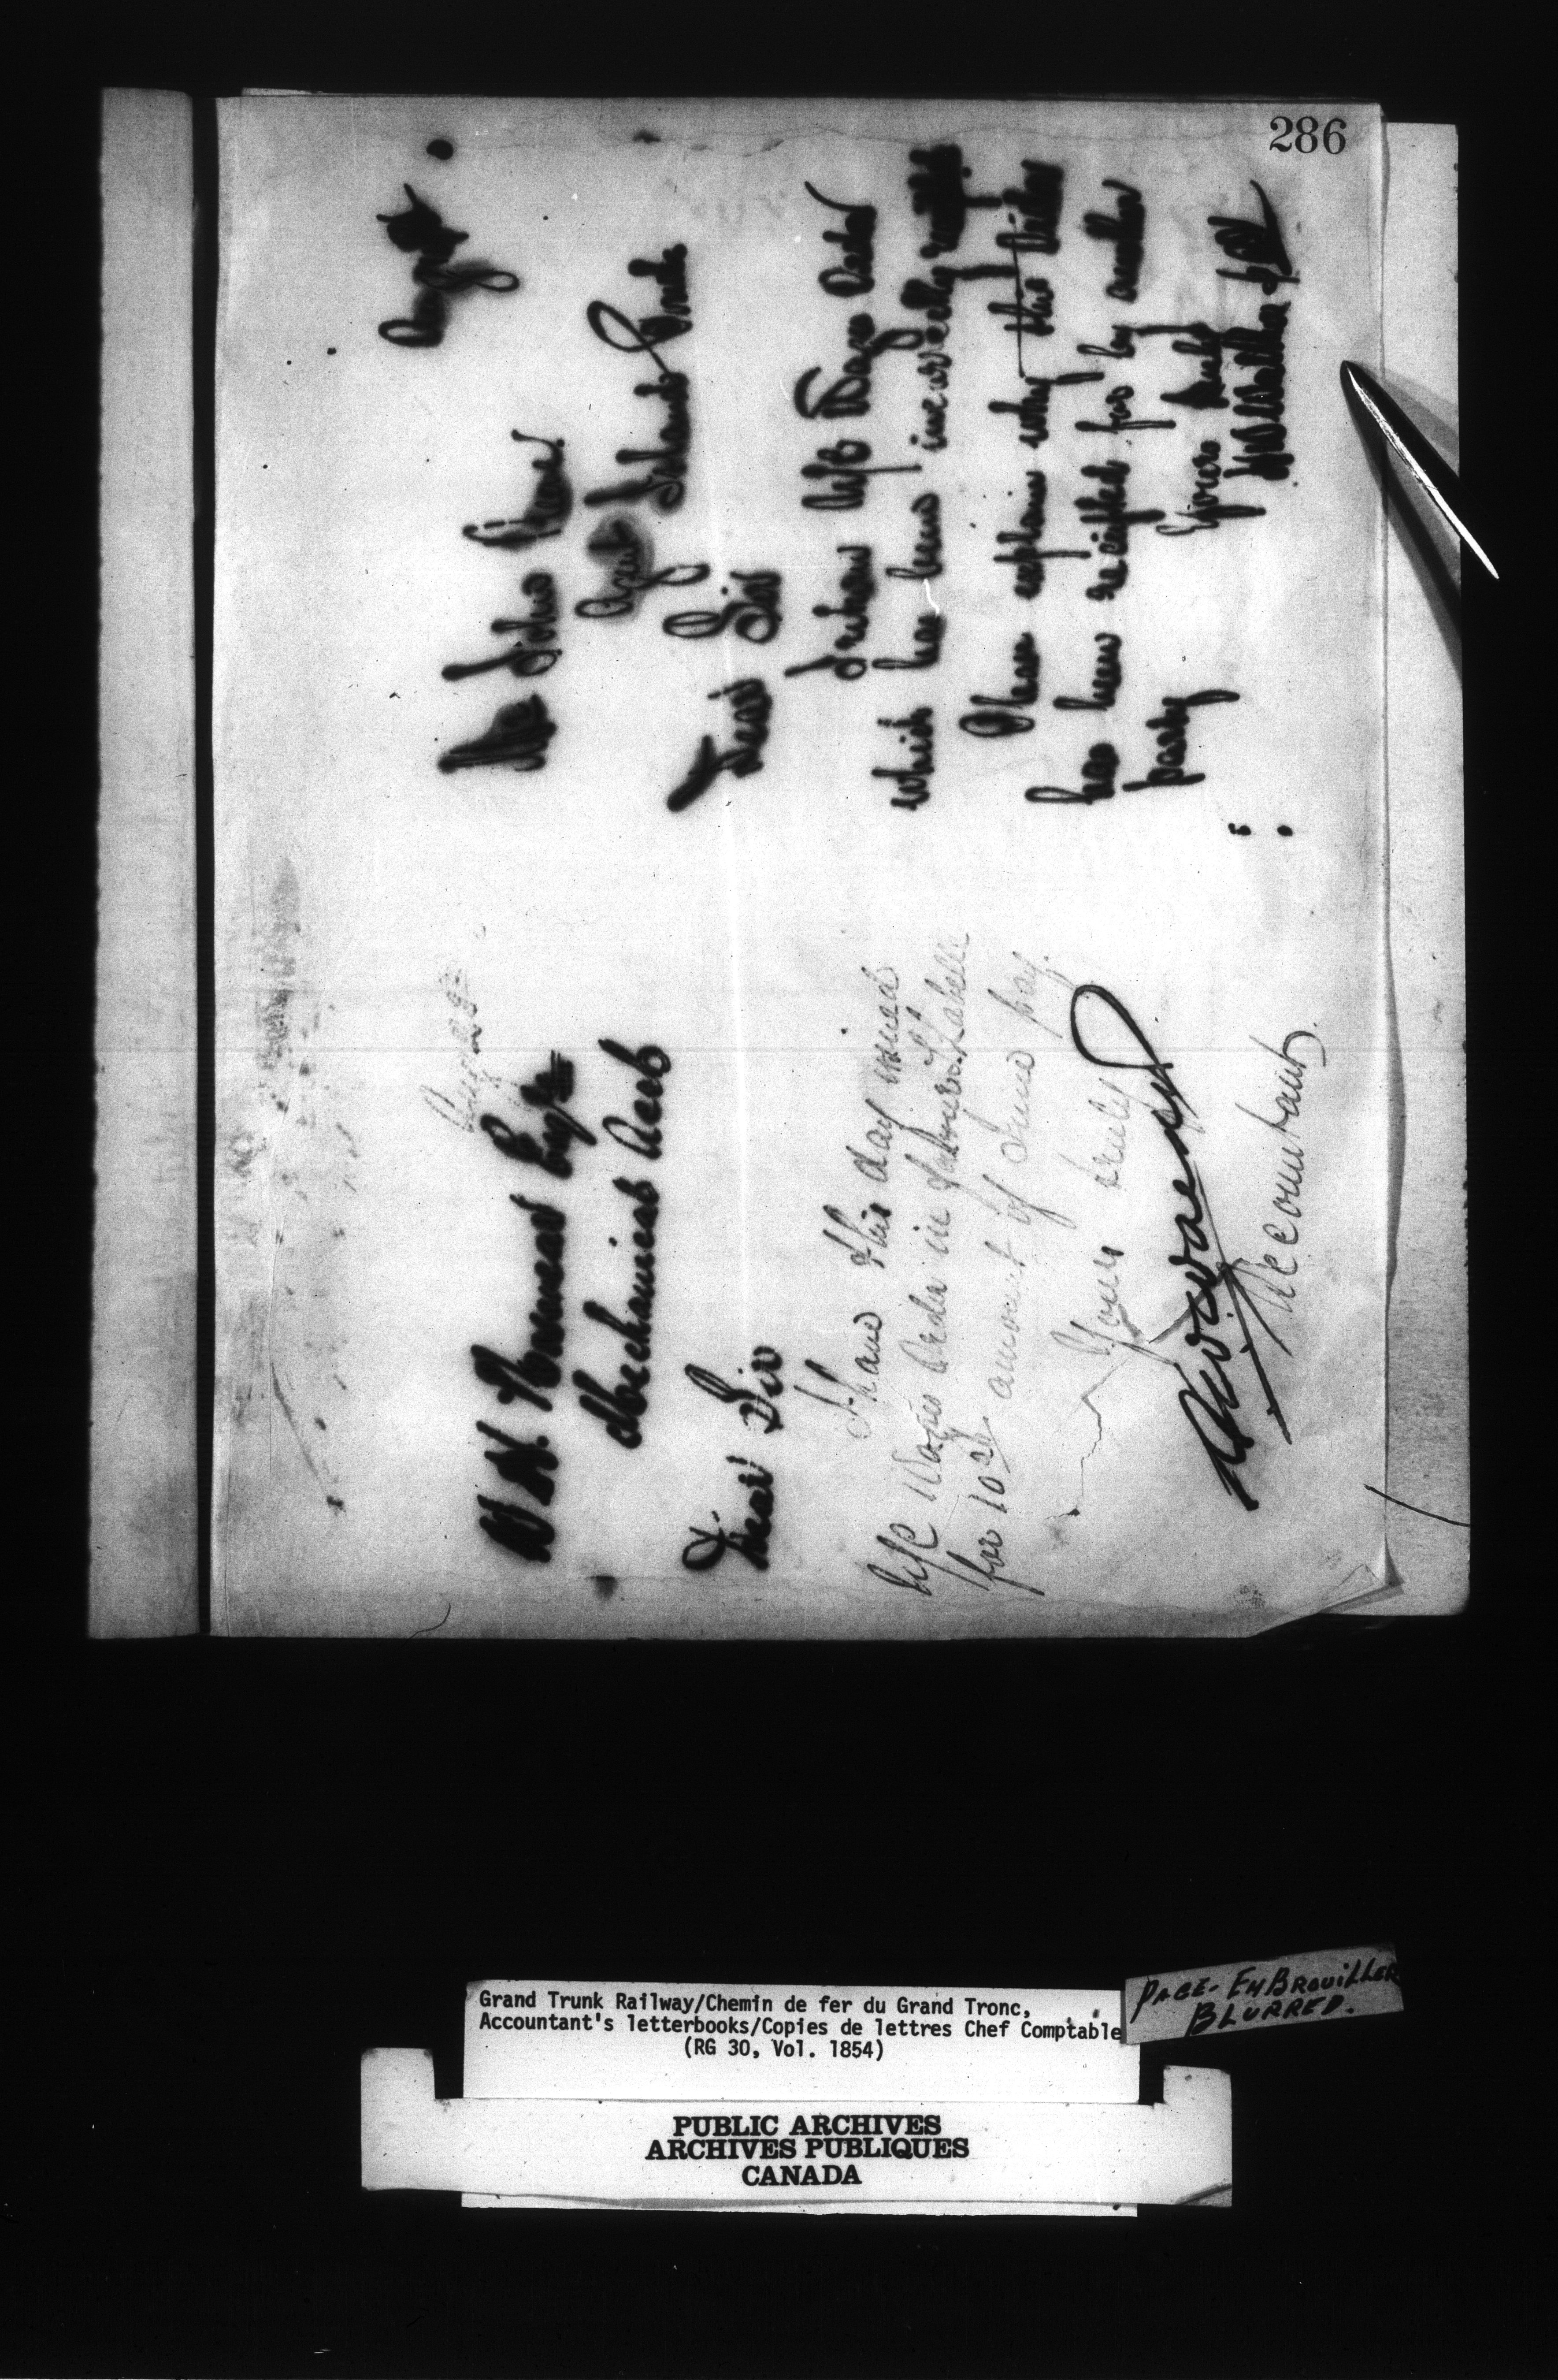 286
Aug 25
W H. Esqr
Mechanical Acct
Dear Sir
I have this day issued
Wages Order in favour Labelle
for 10 amount of time pay.
Yours truly
Accountant
Augst
Mr John
Agent Island Pond
Dear Sir
I return Wages Order
which has been incorrectly
Please explain why this Order
has been receipted for by another
party
Yours truly
Grand Trunk Railway/Chemin de fer du Grand Tronc,
Accountant's letterbooks/Copies de lettres Chef Comptable
(RG 30, Vol. 1854)
PAGE- EMBROUILLER
BLURRED.
PUBLIC ARCHIVES
ARCHIVES PUBLIQUES
CANADA